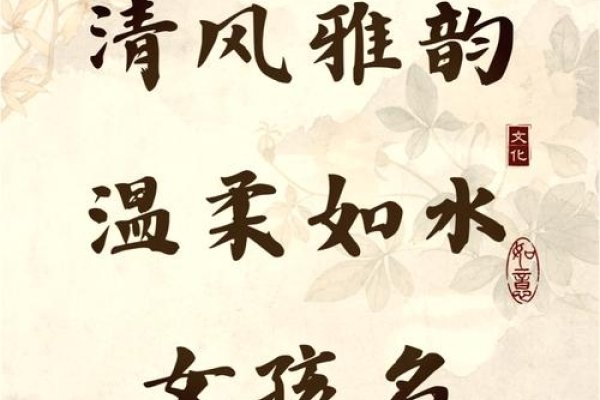 清风雅韵
文化
温柔如水
如意
女孩名